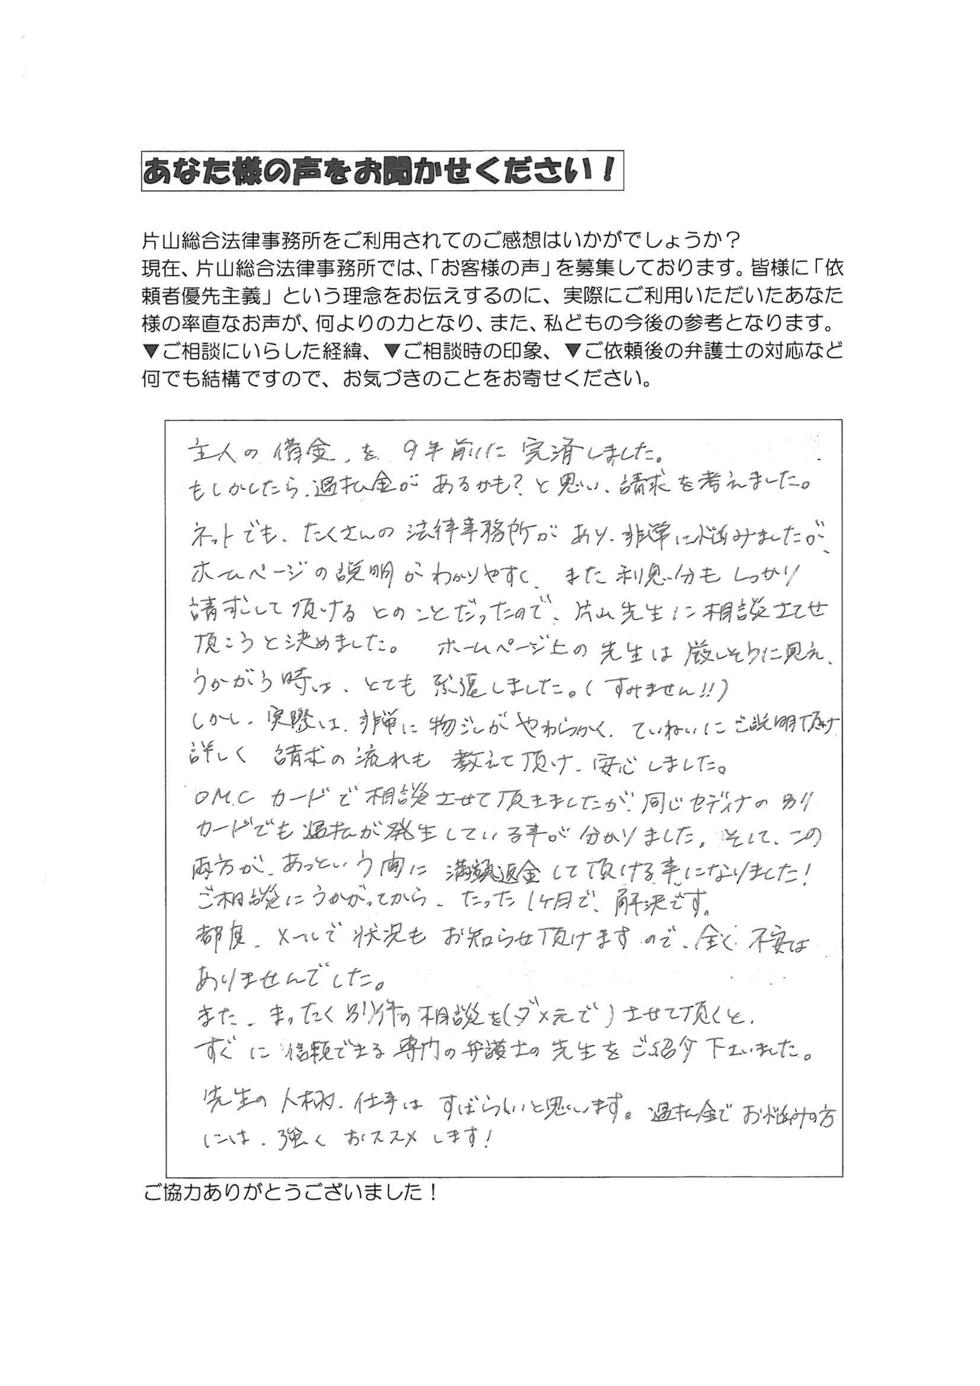 あなた様の声をお聞かせください！
片山総合法律事務所をご利用されてのご感想はいかがでしょうか？
現在、片山総合法律事務所では、「お客様の声」を募集しております。皆様に「依
頼者優先主義」という理念をお伝えするのに、実際にご利用いただいたあなた
様の率直なお声が、何よりの力となり、また、私どもの今後の参考となります。
▼ご相談にいらした経緯、▼ご相談時の印象、▼ご依頼後の弁護士の対応など
何でも結構ですので、お気づきのことをお寄せください。
主人の借金、を9年前に完済しました。
もしかしたら、過払金があるかも？と思い、請求を考えました。
ネットでも、たくさんの法律事務所があり、非常に悩みましたが、
ホームページの説明がわかりやすく、また利息分もしっかり
請求して頂けるとのことだったので、片山先生に相談させて
頂こうと決めました。 ホームページ上の先生は厳しそうに見え、
うかがう時は、とても緊張しました。(すみません!!)
しかし、実際は、非常に物ごしがやわらかく、ていねいにご説明頂け
詳しく請求の流れも教えて頂け、安心しました。
OMCカードで相談させて頂きましたが、同じセディナの別
カードでも過払が発生している事が分かりました。そして、この
両方が、あっという間に満額返金して頂ける事になりました！
ご相談にうかがってから、たった1ヶ月で、解決です。
都度、メールで状況もお知らせ頂けますので、全く不安は
ありませんでした。
また、まったく別件の相談を(ダメ元で)させて頂くと、
すぐに信頼できる専門の弁護士の先生をご紹介下さいました。
先生の人柄、仕事はすばらしいと思います。過払金でお悩みの方
には、強くおススメします！
ご協力ありがとうございました！